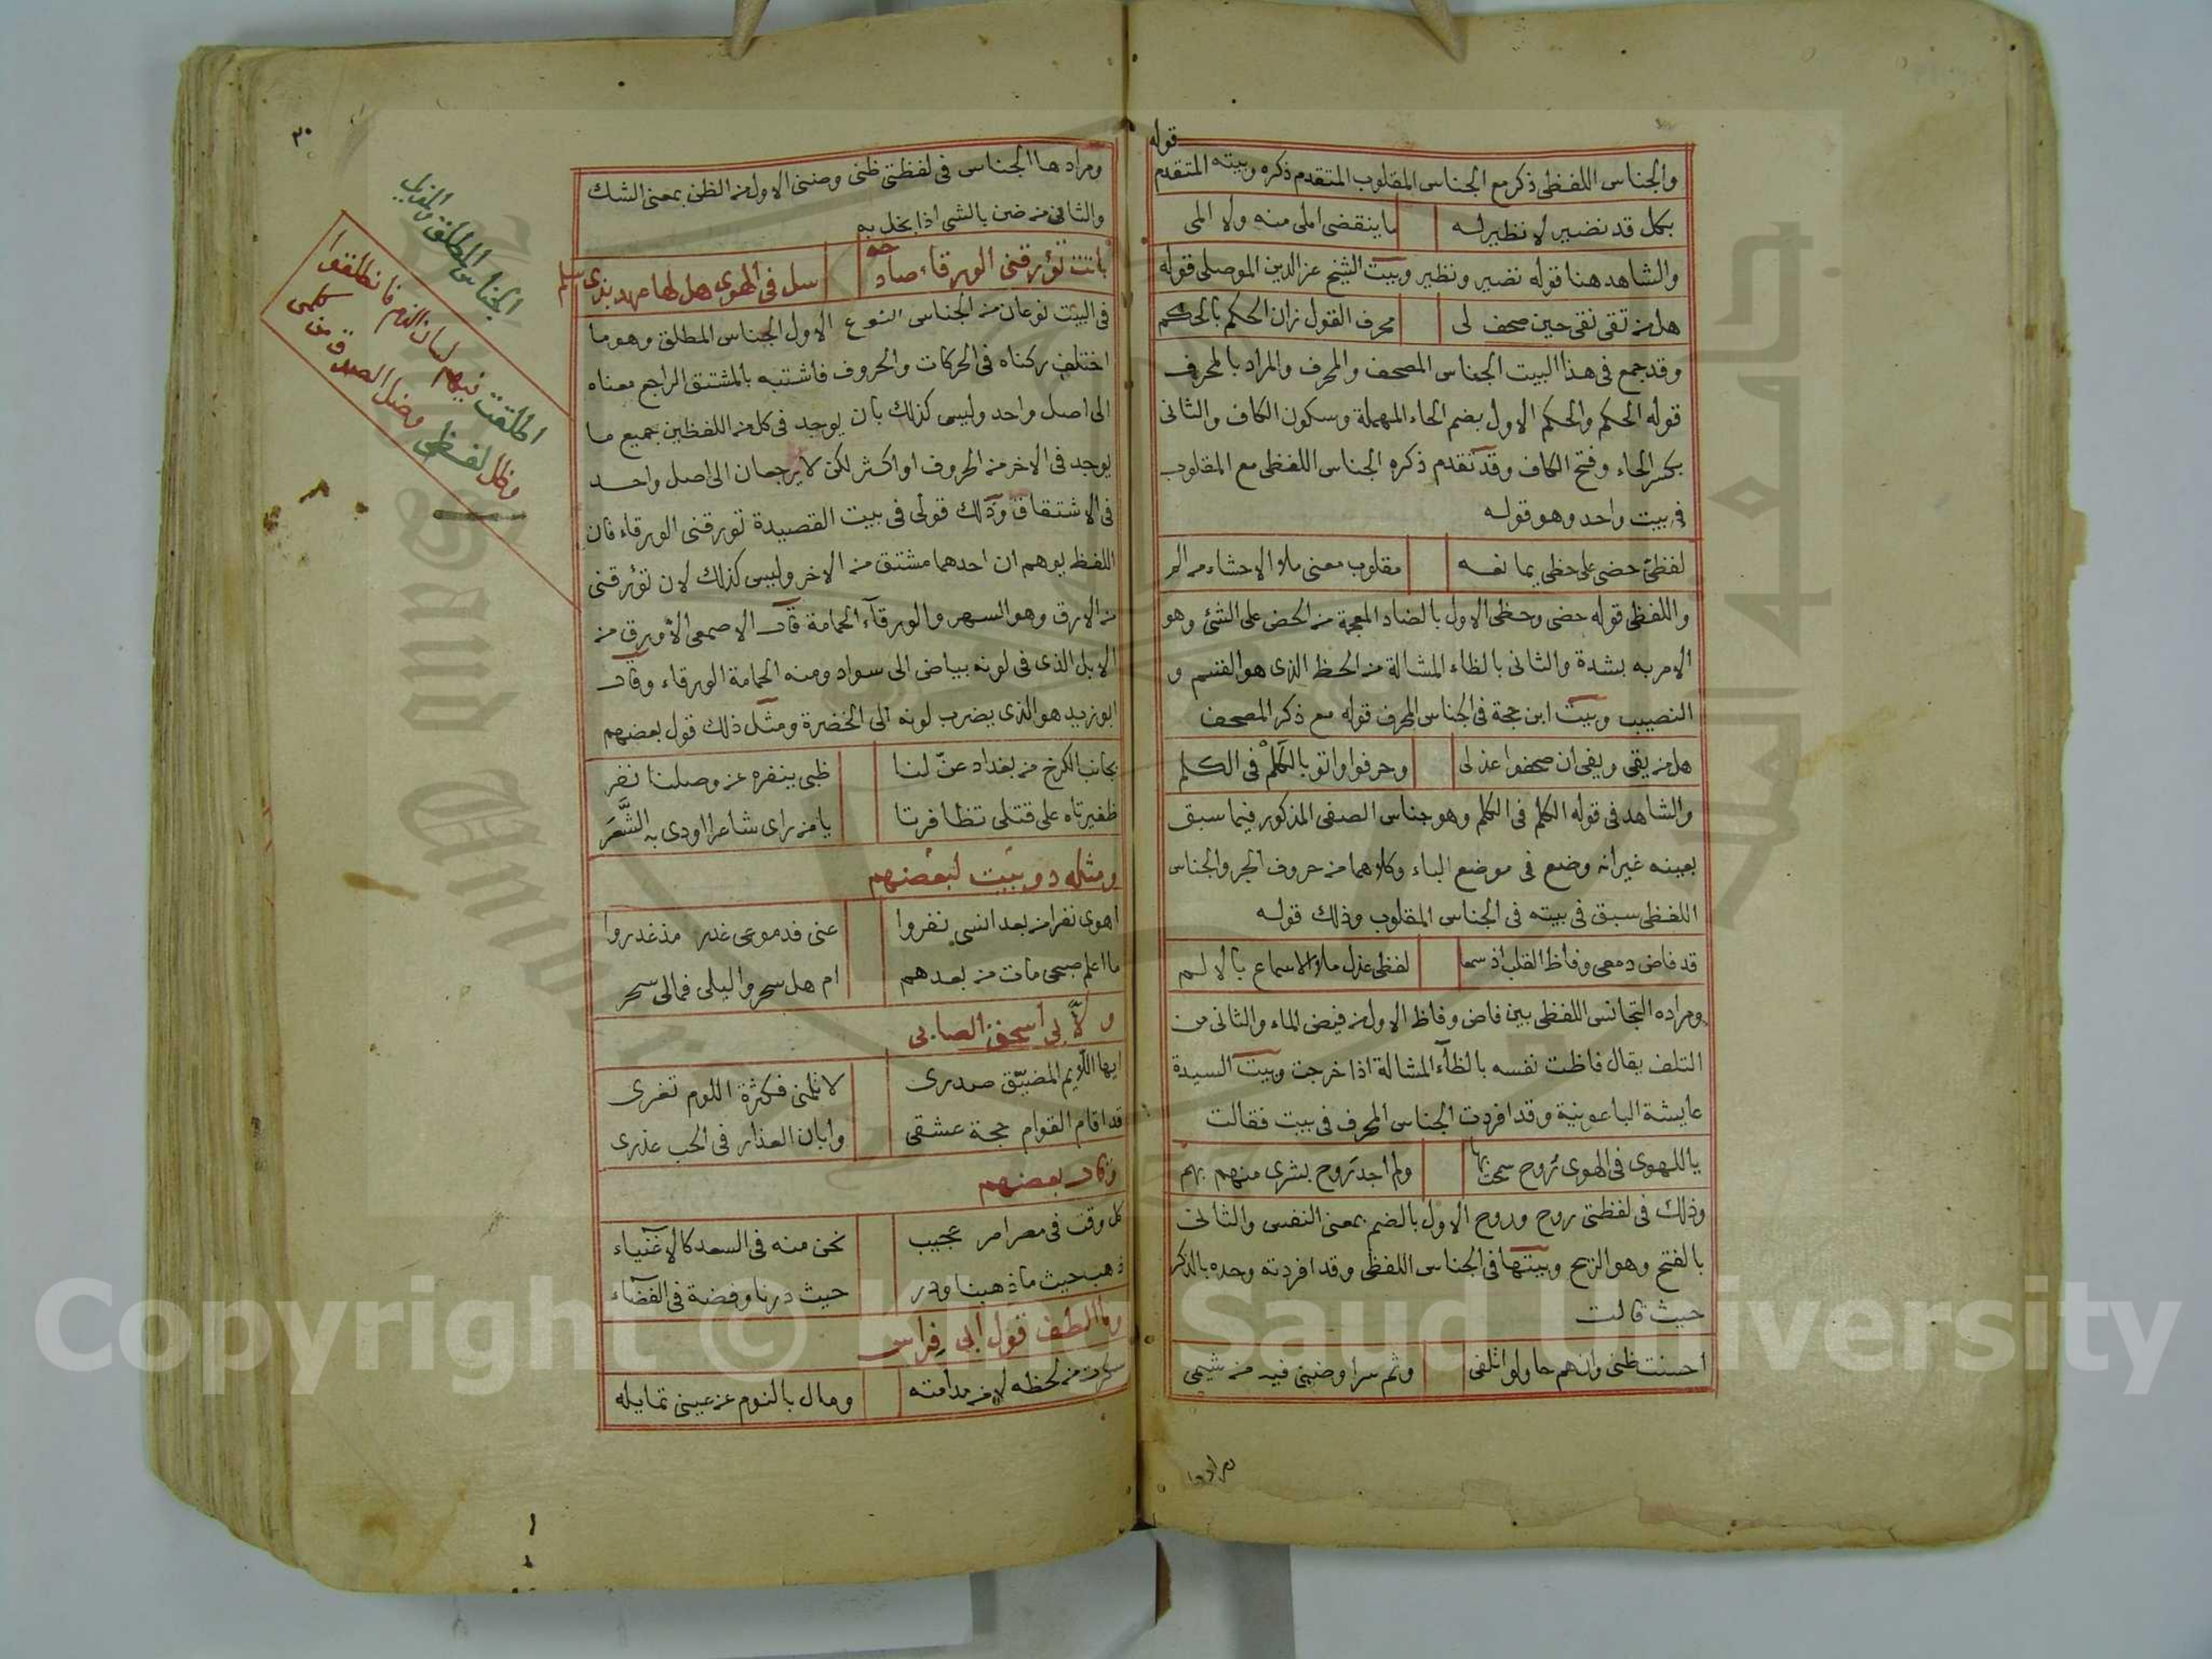 قوله
والجناس اللفظي ذكر مع الجناس المقلوب المتقدم ذكره وبيته المتقدم
بكل قد نضير لا نظير له ما ينقضي املي منه ولا المي
والشاهد هنا قوله نضير ونظير وبيت الشيخ عز الدين الموصلي قوله
هل من تقي نقي حين صحف لي محرف القول زان الحكم بالحكم
وقد جمع في هذا البيت الجناس المصحف والمحرف والمراد بالمحرف
قوله الحكم والحكم الاول بضم الحاء المهملة وسكون الكاف والثاني
بكسر الحاء وفتح الكاف وقد تقدم ذكره الجناس اللفظي مع المقلوب
في بيت واحد وهو قوله
لفظي حضى على حظي بما نفسه مقلوب معنى ملا الاحشاء من الم
واللفظي قوله حضى وحظي الاول بالضاد المعجمة من الحض على الشئ وهو
الامر به بشدة والثاني بالظاء المشالة من الحظ الذي هو القسم و
النصيب وبيت ابن حجة في الجناس المحرف قوله مع ذكر المصحف
هل من يقي ويفي ان صحفوا عذلي وحرفوا واتو بالكلم في الكلم
والشاهد في قوله الكلم في الكلم وهو جناس الصفي المذكور فيما سبق
بعينه غير انه وضع في موضع الباء وكلاهما من حروف الجر والجناس
اللفظي سبق في بيته في الجناس المقلوب وذلك قوله
قد فاض دمعي وفاظ القلب اذ سمعا لفظي عذل ملا الاسماع بالالم
ومراده التجانس اللفظي بين فاض وفاظ الاول من فيض الماء والثاني من
التلف يقال فاظت نفسه بالظاء المشالة اذا خرجت وبيت السيدة
عايشة الباعونية وقد افردت الجناس المحرف في بيت فقالت
يا للهوى في الهوى روح سمحت بها ولم اجد روح بشرى منهم بهم
وذلك في لفظتي روح وروح الاول بالضم بمعنى النفس والثاني
بالفتح وهو الريح وبيتها في الجناس اللفظي وقد افردته وحده بالذكر
حيث قالت
احسنت ظني وانهم حاولوا تلفي وثم سرا وضني فيه من شيمي
ومرادها
٣٠
ومرادها الجناس في لفظتي ظني وضني الاول من الظن بمعنى الشك
والثاني من ضن بالشي اذا بخل به
باتت تؤرقني الورقاء صادحة سل في الهوى هل لها عهد بذي سلم
في البيت نوعان من الجناس النوع الاول الجناس المطلق وهو ما
اختلف ركناه في الحركات والحروف فاشتبه بالمشتق الراجع معناه
الى اصل واحد وليس كذلك بان يوجد في كل من اللفظين جميع ما
يوجد في الاخر من الحروف او اكثر لكن لا يرجعان الى اصل واحد
في الاشتقاق وذلك قولي في بيت القصيدة تؤرقني الورقاء فان
اللفظ يوهم ان احدهما مشتق من الاخر وليس كذلك لان تؤرقني
من الارق وهو السهر والورقاء الحمامة قال الاصمعي الاورق من
الابل الذي في لونه بياض الى سواد ومنه الحمامة الورقاء وقال
ابو زيد هو الذي يضرب لونه الى الخضرة ومثل ذلك قول بعضهم
بجانب الكرخ من بغداد عنّ لنا ظبي ينفره عن وصلنا نفر
ظفيرتاه على قتلي تظافرتا يا من راى شاعرا اودى به الشَّعَر
ومثله دو بيت لبعضهم
اهوى نفرا من بعد انسي نفروا عني فدموعي غدر مذ غدروا
ما اعلم صبحي مات من بعدهم ام هل سحروا ليلي فمالي سحر
ولابي اسحق الصابي
ايها اللايم المضيّق صدري لا تلمني فكثرة اللوم تغري
قد اقام القوام حجة عشقي وابان العذار في الحب عذري
وقال بعضهم
كل وقت في مصر امر عجيب نحن منه في السعد كالاغنياء
ذهب حيث ما ذهبنا ودر حيث درنا وفضة في الفضاء
وما الطف قول ابي فراس
سكرت من لحظه لا من مدامته ومال بالنوم عن عيني تمايله
الجناس المطلق والمذيل
اطلقت فيهم لسان الذم فانطلقوا
كلمي
Copyright © King Saud University